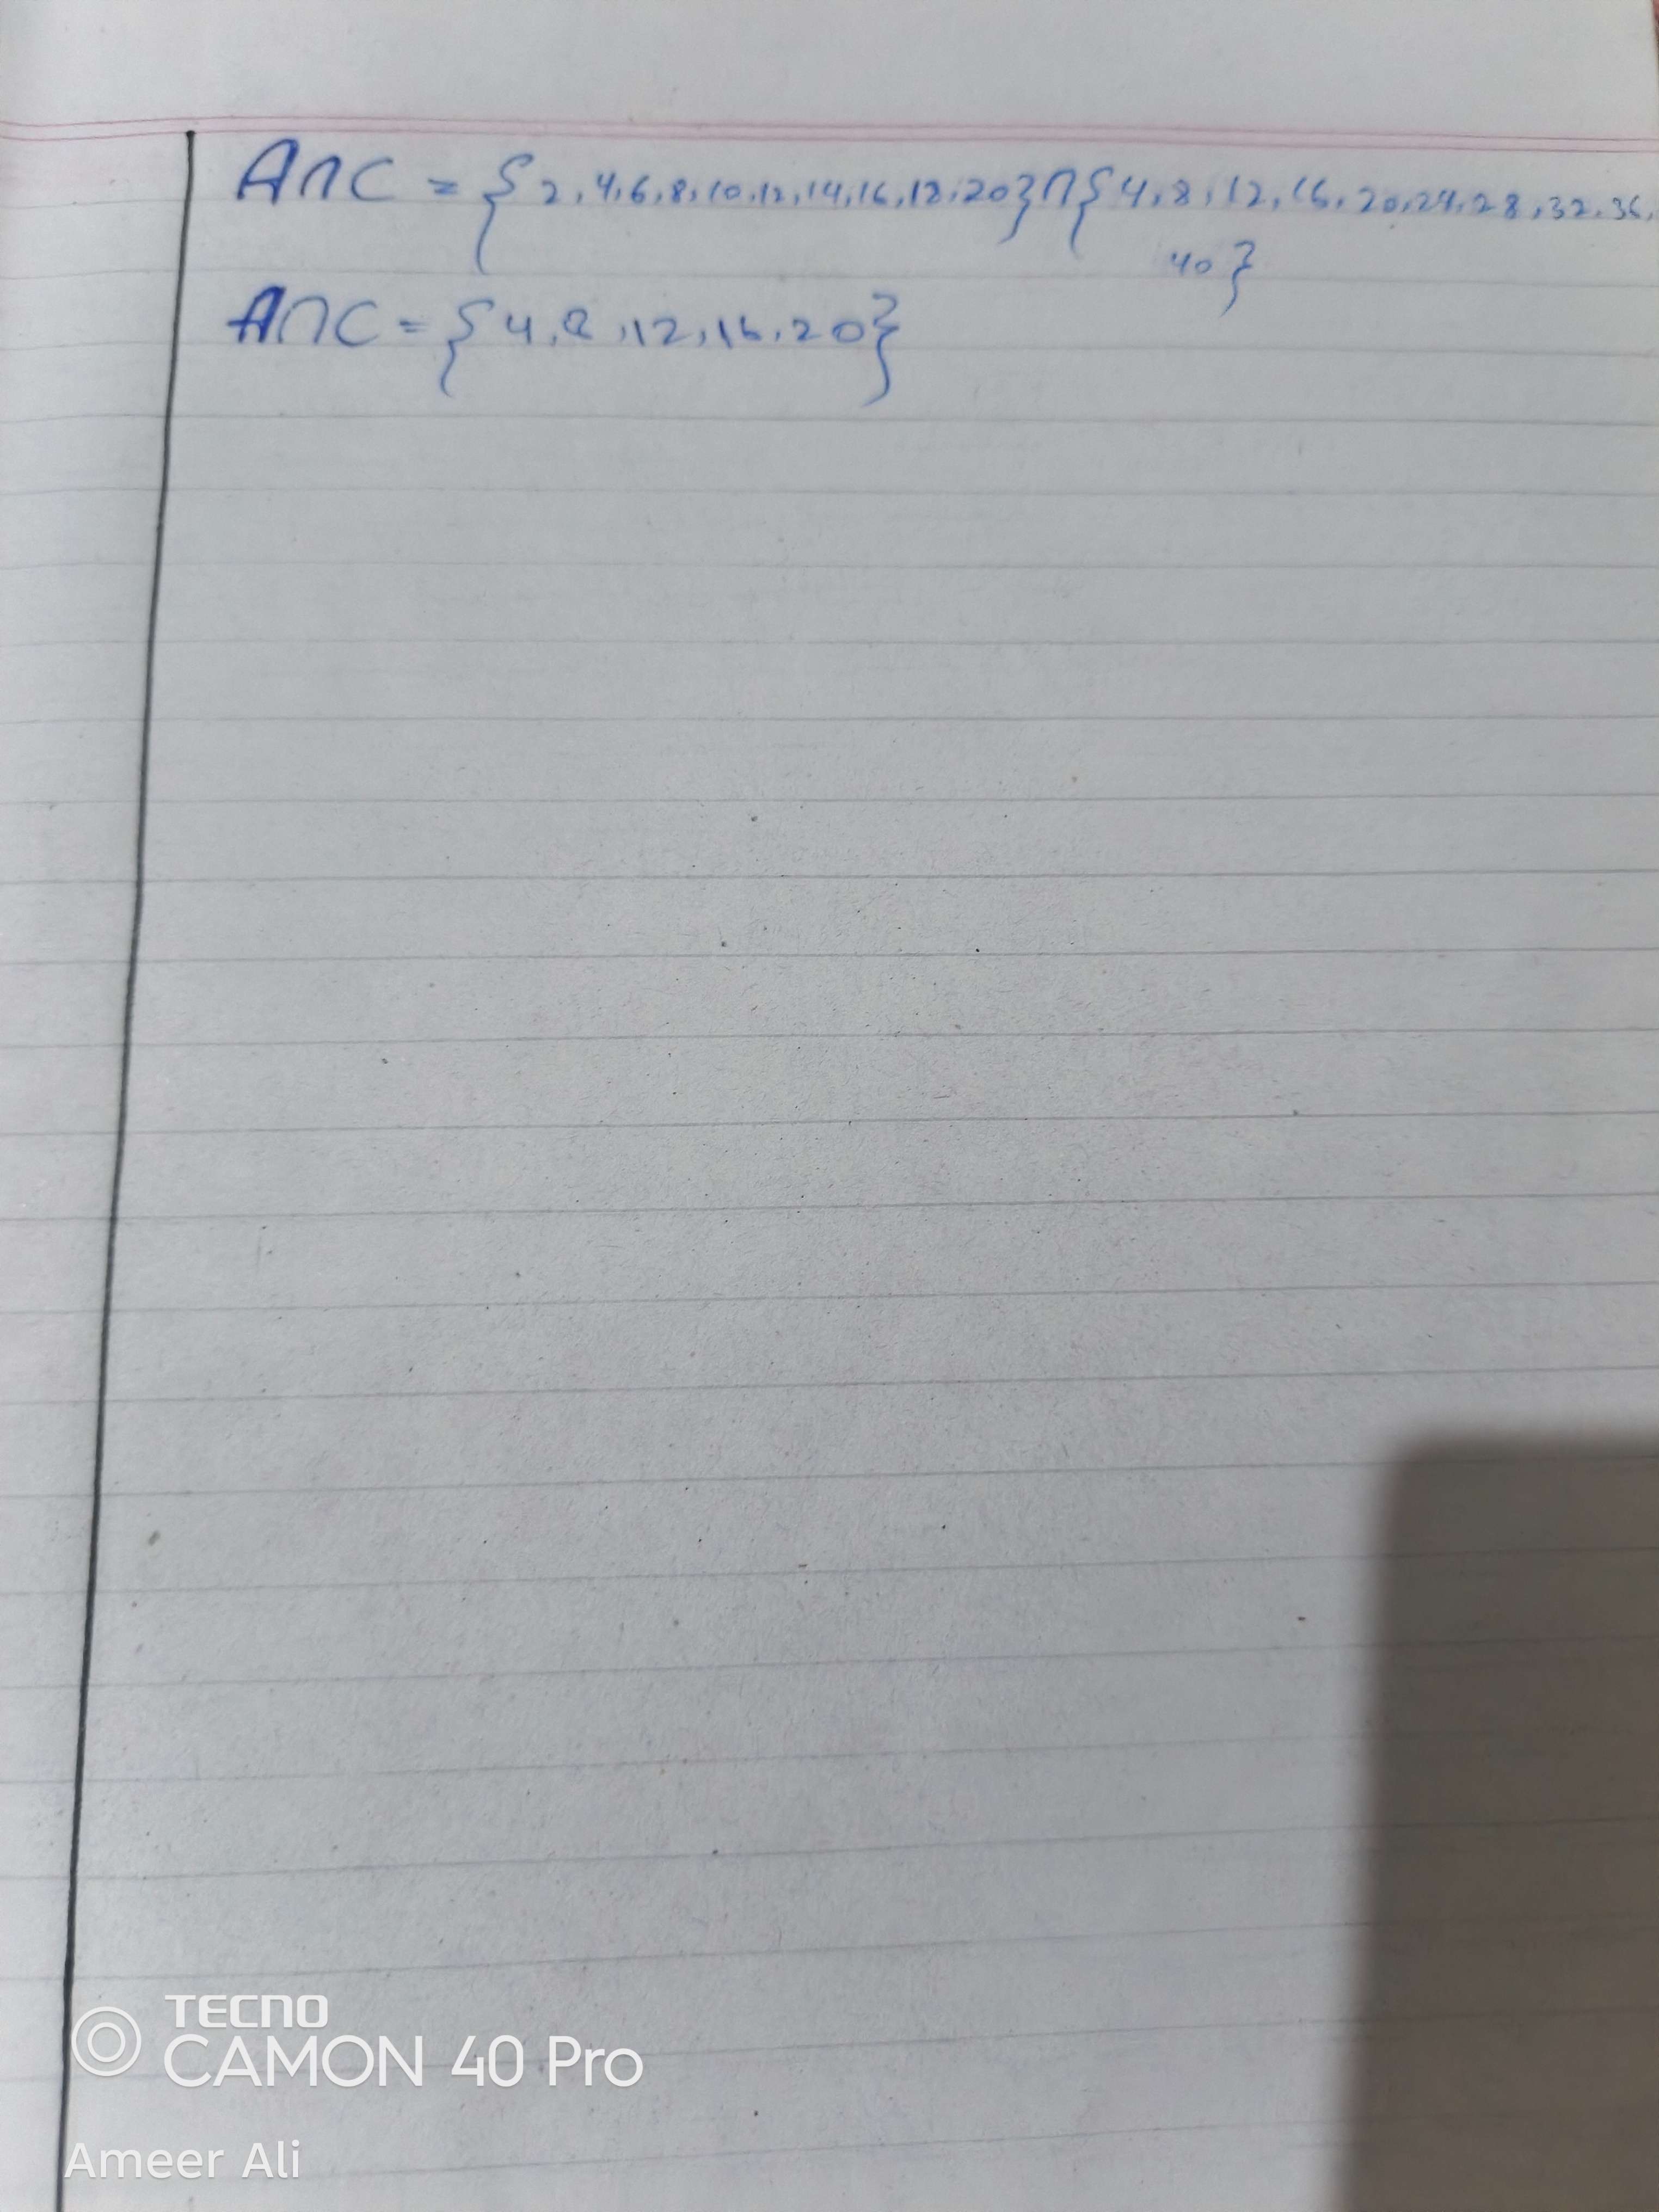 A∩C = {2,4,6,8,10,12,14,16,18,20}∩{4,8,12,16,20,24,28,32,36,
40}
A∩C = {4,8,12,16,20}
TECNO
CAMON 40 Pro
Ameer Ali